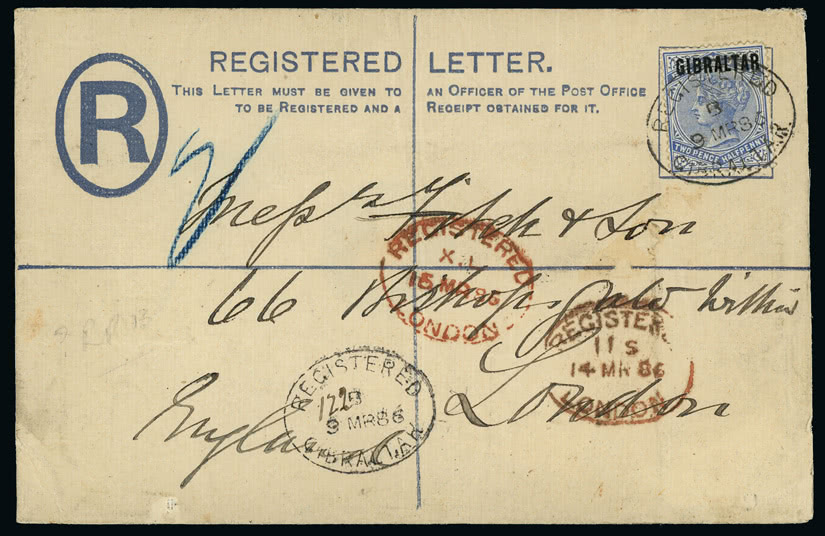 REGISTERED LETTER.
THIS LETTER MUST BE GIVEN TO AN OFFICER OF THE POST OFFICE
TO BE REGISTERED AND A RECEIPT OBTAINED FOR IT.
R
GIBRALTAR
TWO PENCE HALFPENNY
REGISTERED
B
9 MR 86
GIBRALTAR
Messrs Fitch & Son
66 Bishopsgate Within
London
England
REGISTERED
X
15 MR 86
LONDON
REGISTERED
11 S
14 MR 86
LONDON
REGISTERED
122
9 MR 86
GIBRALTAR